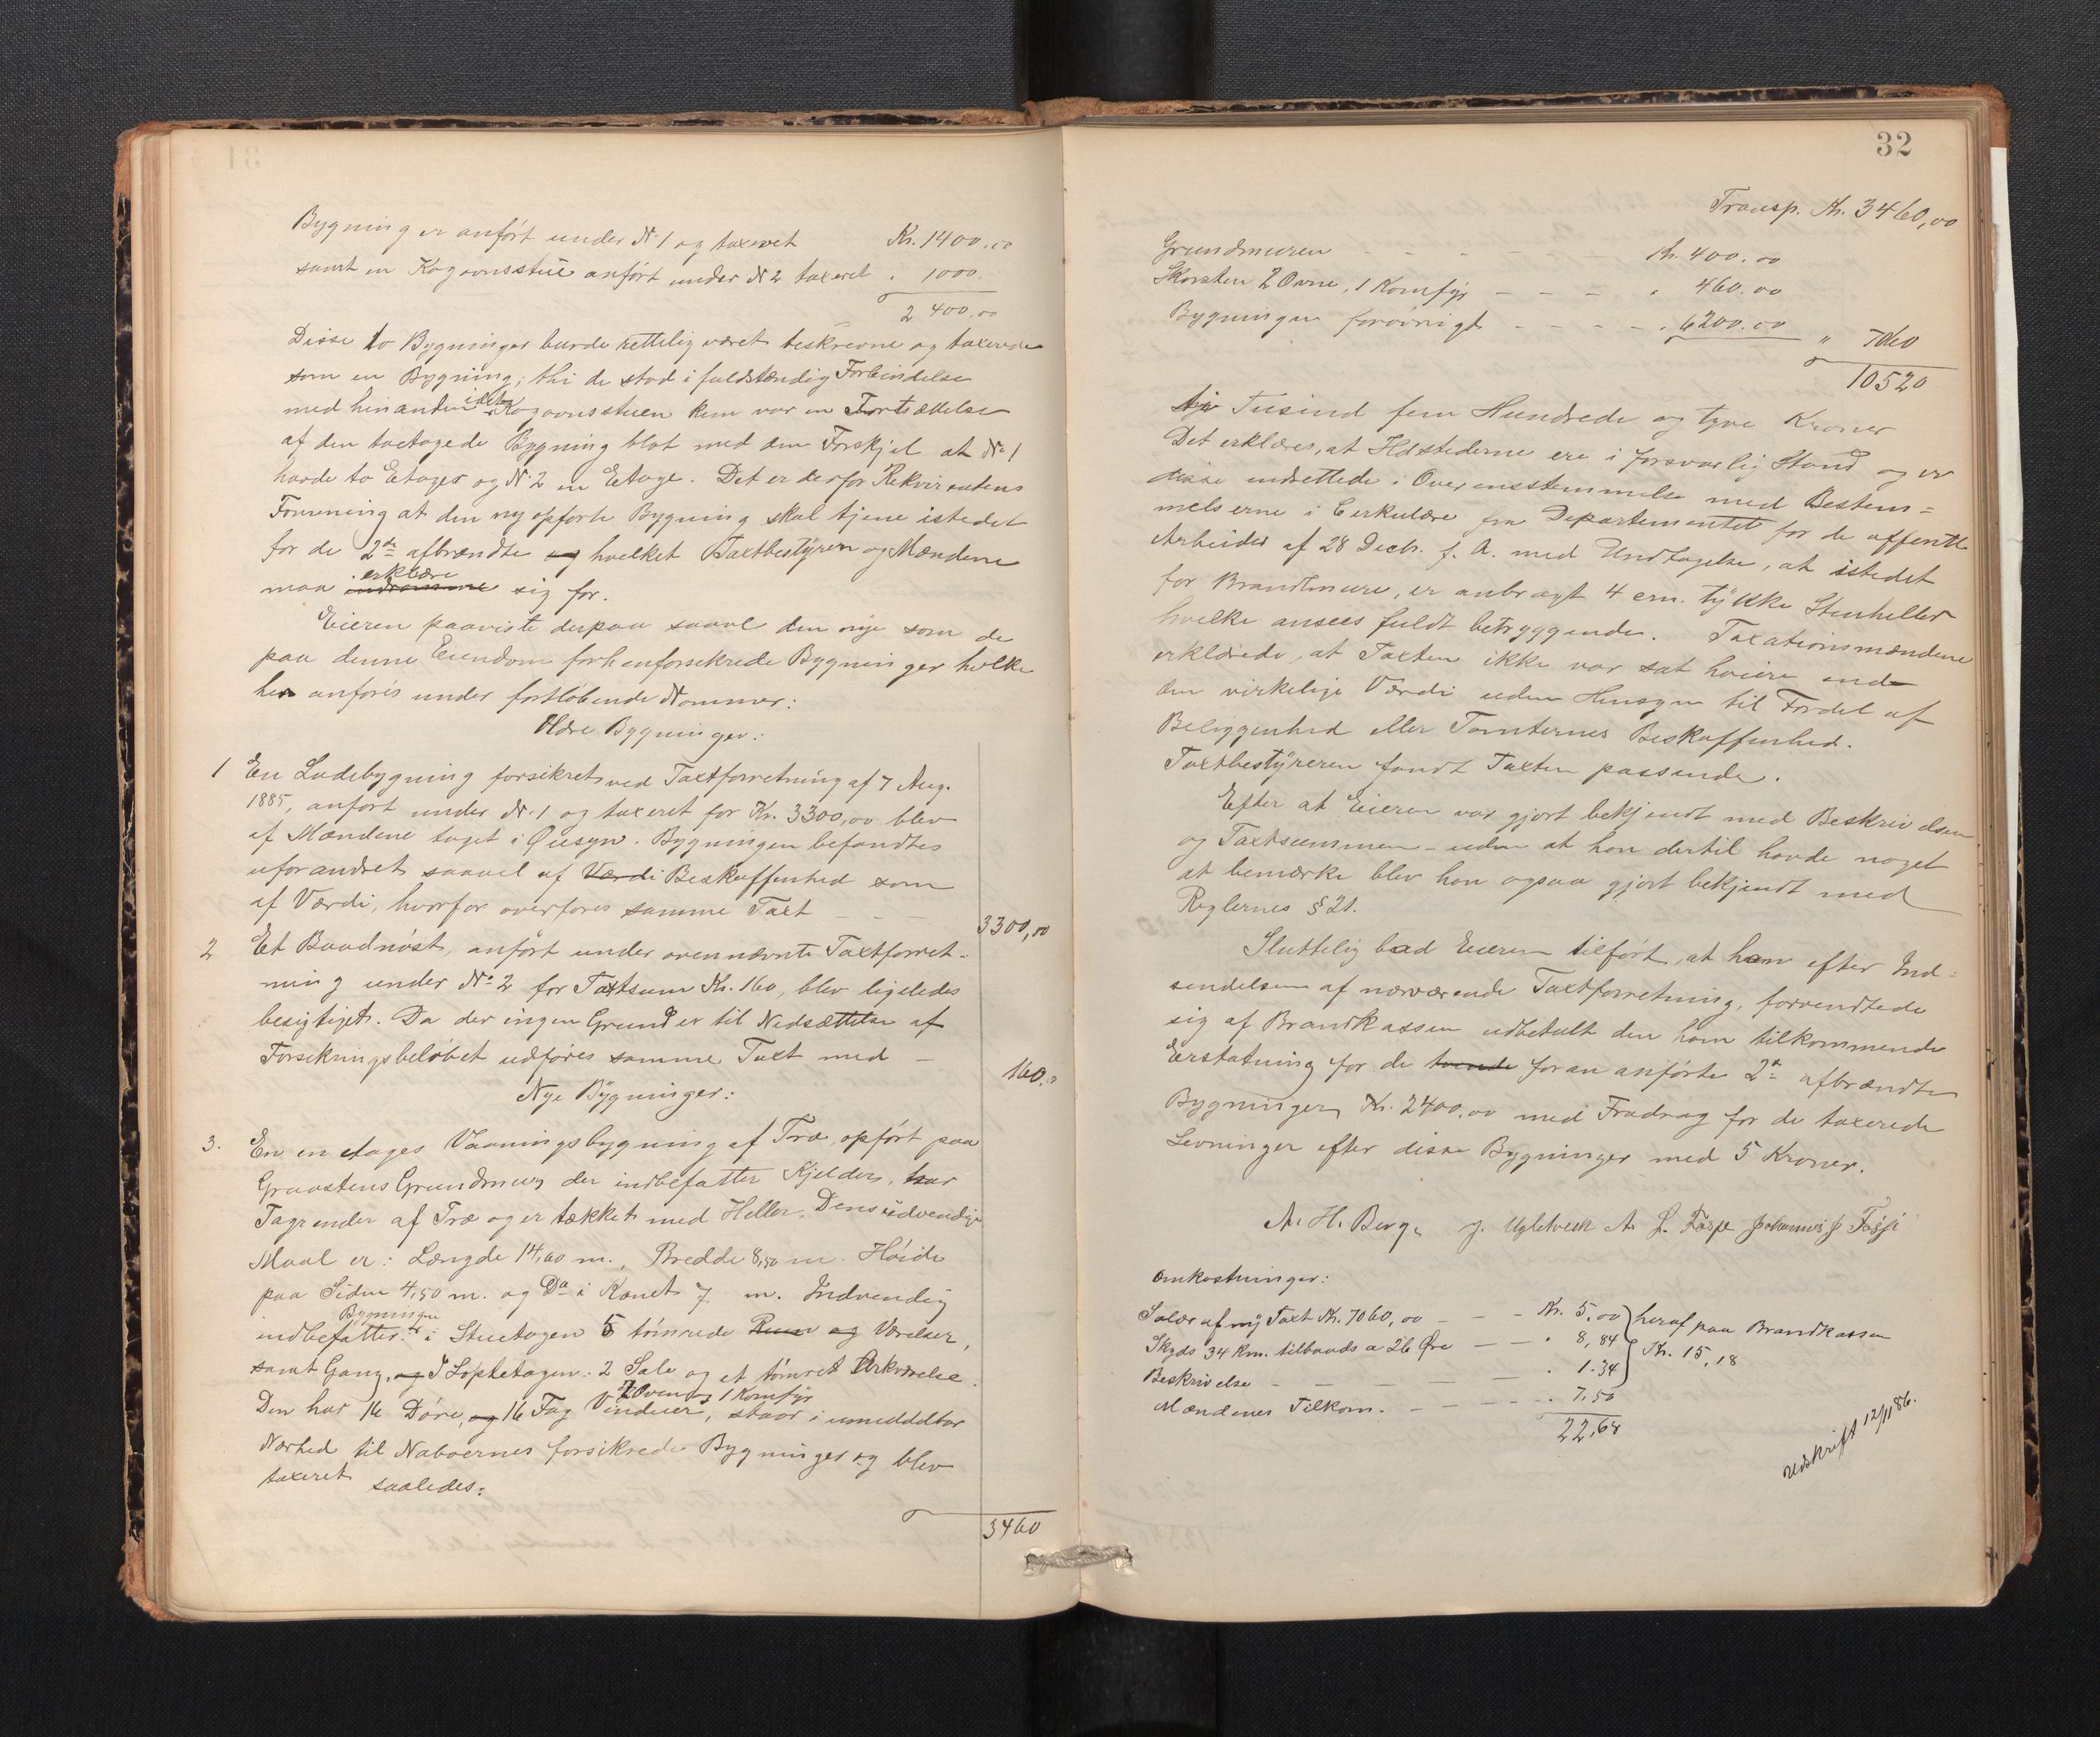 Bygning er anført under N. 1 og taxeret Kr. 1400.00
samt en Rogovnsstue anført under N. 2 taxeret . 1000.
2 400,00
Disse to Bygninger burde rettelig været beskrevne og taxerede
som en Bygning, thi de stod i fuldstændig Forbindelse
med hinanden idet Rogovnsstuen kun var en Fortsættelse
af den toetagede Bygning blot med den Forskjel at N. 1
havde to Etager og N. 2 en Etage. Det er derfor Rekvirentens
Formening at den ny opførte Bygning skal tjene istedet
for de 2de afbrændte og hvilket Taxtbestyreren og Mændene
maa indrømme erklære sig for.
Eieren paaviste derpaa saavel den nye som de
paa denne Eiendom forhenforsikrede Bygninger hvilke
her anføres under fortløbende Nommer:
Ældre Bygninger:
1 En Ladebygning forsikret ved Taxtforretning af 7 Aug.
1885, anført under N. 1 og taxeret for Kr. 3300,00 blev
af Mændene taget i Øiesyn. Bygningen befandtes
uforandret saavel af Værdi Beskaffenhed som
af Værdi, hvorfor overføres samme Taxt — — — 3300,00
2 Et Baadnøst, anført under ovennævnte Taxtforret-
ning under No 2 for Taxtsum Kr. 160, blev ligeledes
besigtiget. Da der ingen Grund er til Nedsættelse af
Forsikringsbeløbet udføres samme Taxt med — 160.00
Nye Bygninger:
3. En en etages Vaaningsbygning af Træ, opført paa
Graastens Grundmur der indbefatter Kjelder, har
Tagrender af Træ og er tækket med Heller. Dens udvendige
Maal er: Længde 14,60 m., Bredde 8,50 m. Høide
paa Siden 4,50 m. og Do i Rønet 7 m. Indvendig
indbefatter Bygningen: i Stuetagen 5 tømrede Rum og Værelser,
samt Gang, og I Loftetagen: 2 Sale og et tømret Arkværelse.
Den har 16 Døre, og 16 Fag Vinduer, 2 Ovne og 1 Komfyr, staar i umiddelbar
Nærhed til Naboernes forsikrede Bygninger og blev
taxeret saaledes:
3460
32
Transp. Kr. 3460,00
Grundmuren - - - - - - Kr. 400.00
Skorsten 2 Ovne, 1 Komfyr — — — — . 460.00
Bygningen forøvrigt - - - - . 6200.00 " 7060
10520
ti Tusind fem Hundrede og tyve Kroner
Det erklæres, at Ildstederne ere i forsvarlig Stand og er
disse indrettede i Overensstemmelse med Bestem=
melserne i Cerkulære fra Departementet for de offentl.
Arbeider af 28 Decb. f. A. med Undtagelse, at istedet
for Brandmure, er anbragt 4 cm. tykke Stenheller
hvilke ansees fuldt betryggende. Taxationsmændene
erklærede, at Taxten ikke var sat høiere end
den virkelige Værdi uden Hensyn til Fordel af
Beliggenhed eller Tomternes Beskaffenhed.
Taxtbestyreren fandt Taxten passende.
Efter at Eieren var gjort bekjendt med Beskrivelsen
og Taxtsummen - uden at han dertil havde noget
at bemærke blev han ogsaa gjort bekjendt med
Reglernes § 21.
Sluttelig bad Eieren tilført, at han efter Ind=
sendelsen af nærværende Taxtforretning, forventede
sig af Brandkassen udbetalt den ham tilkommende
Erstatning for de tvende foran anførte 2de afbrændte
Bygninger, Kr. 2400.00 med Fradrag for de taxerede
Levninger efter disse Bygninger med 5 Kroner.
A. H. Berge J. Ugletveit A. L. Fosse Johannes J. Fosse
Omkostninger:
Salær af ny Taxt Kr. 7060,00 — - - Kr. 5,00 } heraf paa Brandkassen
Skyds 34 km. tilbaads a 26 Øre — — . 8,84 } Kr. 15,18
Beskrivelse — — — — — . 1.34
Mændenes Tilkom. - - - - - . 7,50
22,68
Udskrift 12/11 86.